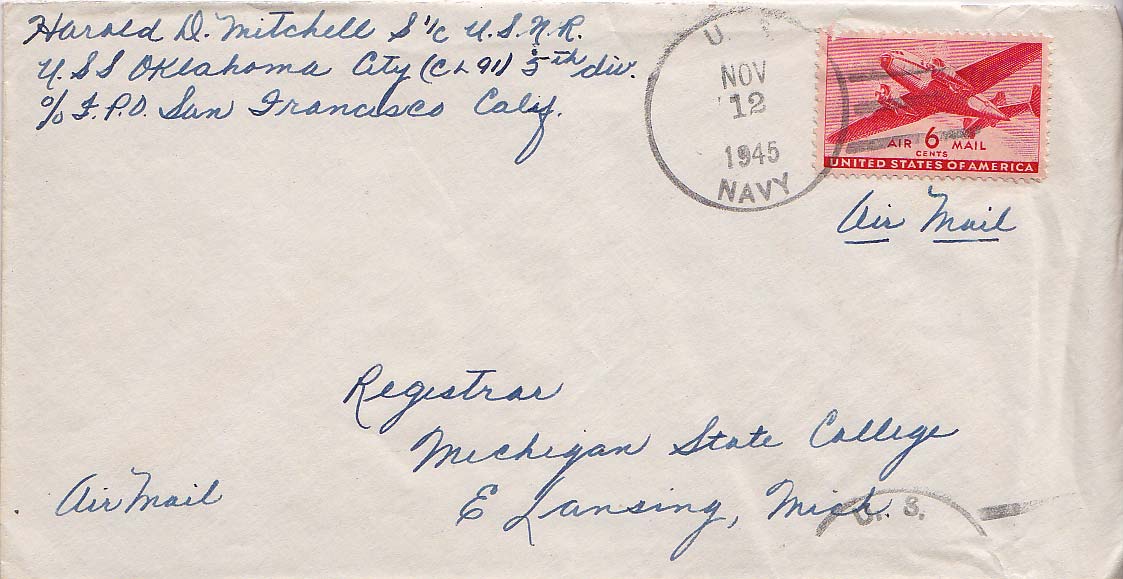 Harold D. Mitchell S 1/c U.S.N.R.
U.S.S Oklahoma City (CL 91) 5th div.
c/o F.P.O. San Francisco Calif.
U.
NOV
12
1945
NAVY
AIR 6 MAIL
CENTS
UNITED STATES OF AMERICA
Air Mail
Registrar
Michigan State College
E Lansing, Mich.
Air Mail
U. S.